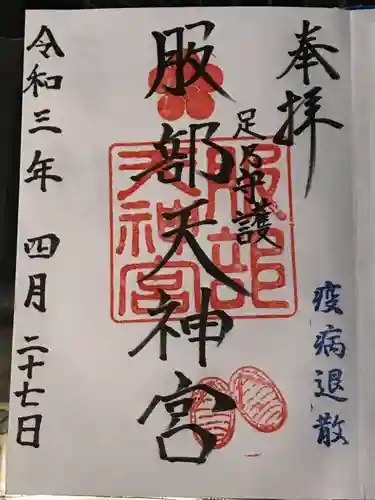 奉拝
疫病退散
足の守護
服部天神宮
服部天神宮
令和三年 四月 二十七日